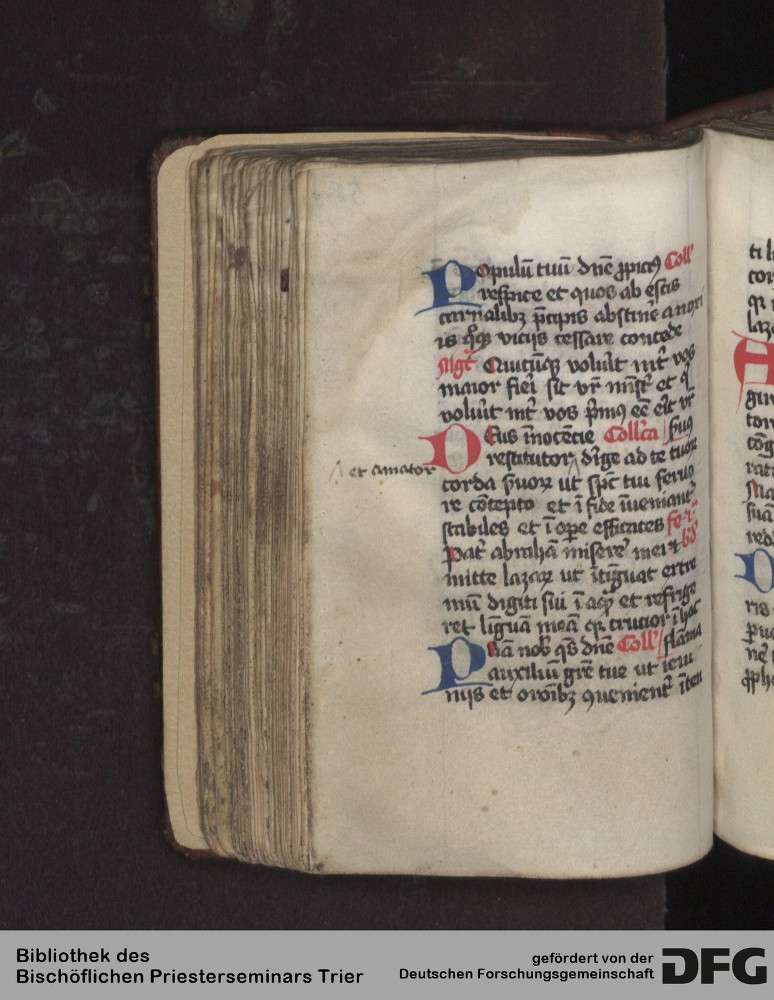 Populū tuū dn̄e ꝓpici9 Coll'
respice et quos ab escis
carnalibꝫ p̄cipis abstinē a noxi
is qͦqꝫ viciis cessare concede
Mgt̄ Quicūqꝫ volūit int̄ vos
maior fieri sit vr̄ minist̄ et qͥ
volūit int̄ vos p̄mꝰ eē erit vr̄
Deus īnocētie Coll'ca | s̄uus
restitutor /\ dirige ad te tuoꝝ
/\ et amator
corda s̄uoꝝ ut spc̄ tui feruo
re cōcepto et ī fide īueniant᷑
stabiles et ī oꝑe efficaces fe-r-
Pat̄ abrahā miserere mei ⁊ bd'
mitte lazaꝝ ut ītīguat extre
mū digiti sui ī aqͣ et refrige
ret līguā meā qꝛ crucior ī hac
Psta nob' qs̄ dn̄e Coll' | flāma
auxiliū grē tue ut ieiu
niis et orōibꝫ ꝯuenient᷑ ītēti
Bibliothek des
Bischöflichen Priesterseminars Trier
gefördert von der
Deutschen Forschungsgemeinschaft
DFG